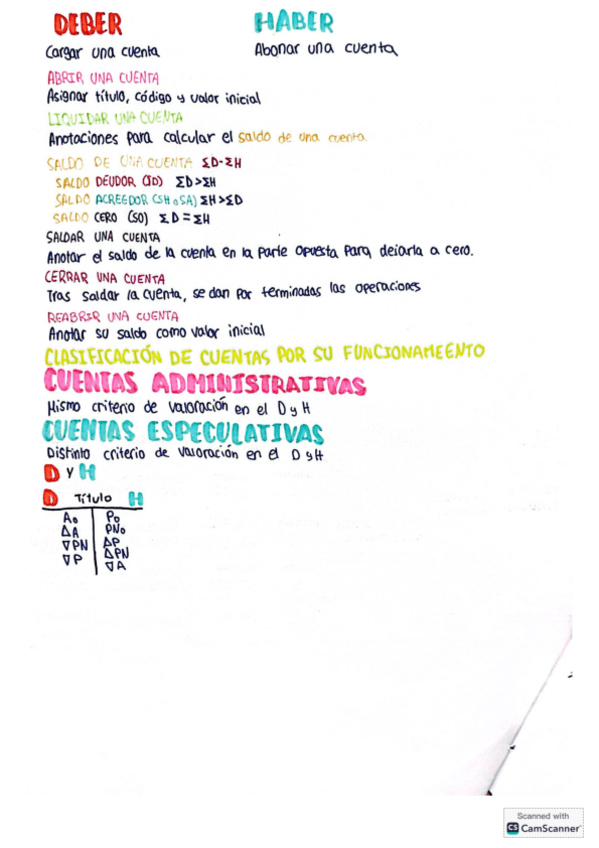 DEBER HABER
Cargar una cuenta Abonar una cuenta
ABRIR UNA CUENTA
Asignar título, código y valor inicial
LIQUIDAR UNA CUENTA
Anotaciones para calcular el saldo de una cuenta.
SALDO DE UNA CUENTA ΣD-ΣH
SALDO DEUDOR (SD) ΣD>ΣH
SALDO ACREEDOR (SH o SA) ΣH>ΣD
SALDO CERO (S0) ΣD=ΣH
SALDAR UNA CUENTA
Anotar el saldo de la cuenta en la parte opuesta para dejarla a cero.
CERRAR UNA CUENTA
Tras saldar la cuenta, se dan por terminadas las operaciones
REABRIR UNA CUENTA
Anotar su saldo como valor inicial
CLASIFICACIÓN DE CUENTAS POR SU FUNCIONAMEENTO
CUENTAS ADMINISTRATIVAS
Mismo criterio de valoración en el D y H
CUENTAS ESPECULATIVAS
Distinto criterio de valoración en el D y H
D y H
D Título H
A₀ P₀
ΔA PN₀
∇PN ΔP
∇P ΔPN
∇A
Scanned with
CS CamScanner